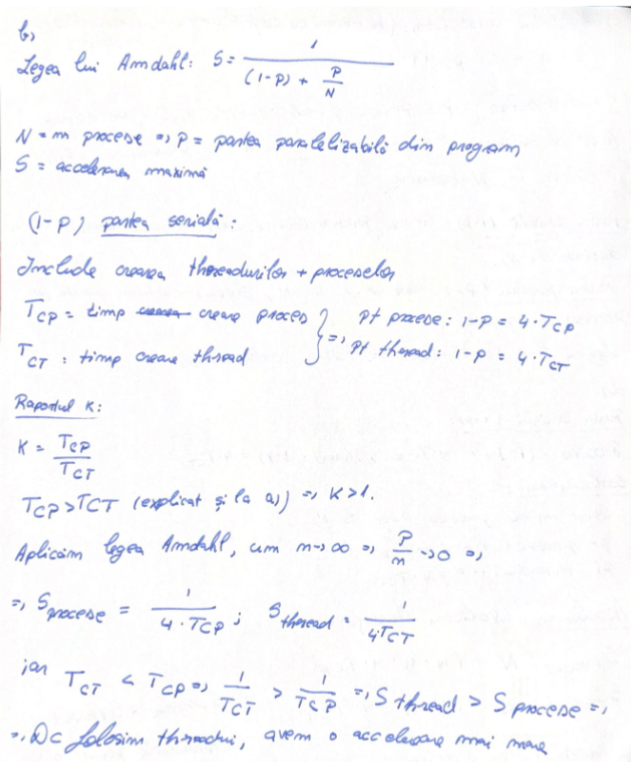 b)
Legea lui Amdahl: S = 1 / ((1-P) + P/N)
N = m procese => P = partea paralelizabilă din program
S = accelerarea maximă
(1-P) partea serială:
Include crearea threadurilor + proceselor
TCP = timp creare proces } => pt procese: 1-P = 4·TCP
TCT = timp creare thread } pt thread: 1-P = 4·TCT
Raportul K:
K = TCP / TCT
TCP > TCT (explicat și la a)) => K > 1.
Aplicăm legea Amdahl, cum m → ∞ => P/m → 0 =>
=> S procese = 1 / (4·TCP) ; S thread = 1 / (4TCT)
iar TCT < TCP => 1/TCT > 1/TCP => S thread > S procese =>
=> Dc folosim threaduri, avem o accelerare mai mare